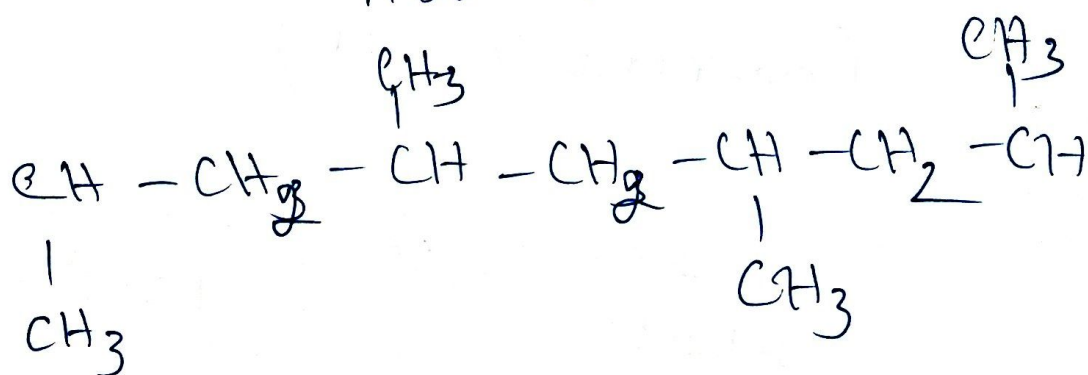 CH3
CH3
CH - CH2 - CH - CH2 - CH - CH2 - CH
CH3
CH3